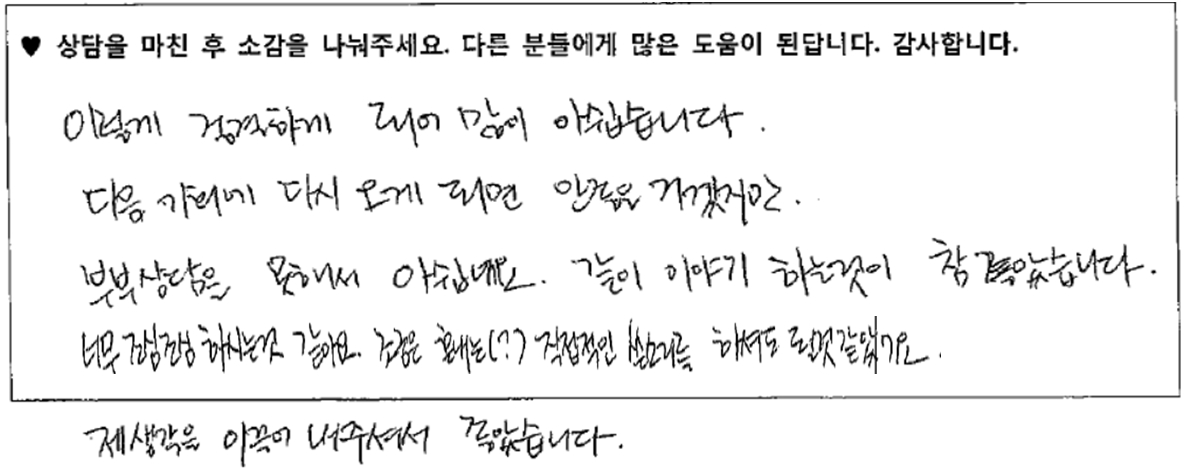 ♥ 상담을 마친 후 소감을 나눠주세요. 다른 분들에게 많은 도움이 된답니다. 감사합니다.
이렇게 종결하게 되어 많이 아쉽습니다.
다음 기회에 다시 오게 되면 안좋은 거겠지만.
부부상담을 못해서 아쉽네요. 같이 이야기 하는것이 참 좋았습니다.
너무 조심조심 하시는것 같아요. 조금은 직접적인 쓴소리를 하셔도 될것같았거든요.
제생각을 이끌어 내주셔서 좋았습니다.